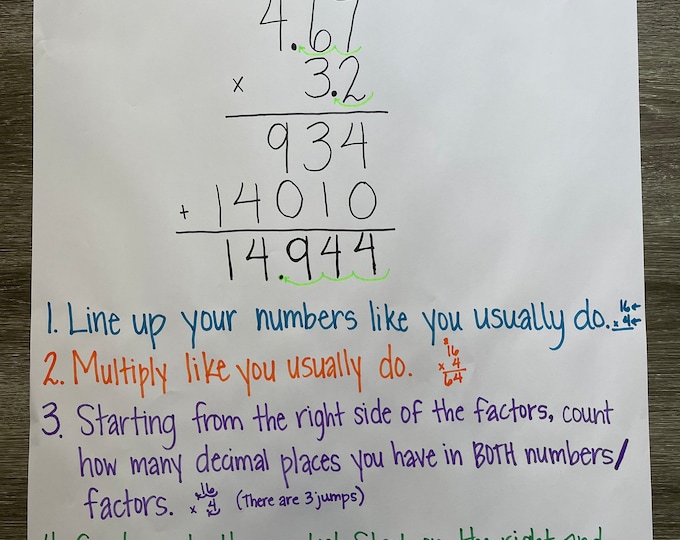 4.67
x 3.2
934
+ 14010
14.944
1. Line up your numbers like you usually do. 16←
x 4←
2. Multiply like you usually do. 16
x 4
64
3. Starting from the right side of the factors, count
how many decimal places you have in BOTH numbers/
factors. 16 (There are 3 jumps)
x 4
the right and